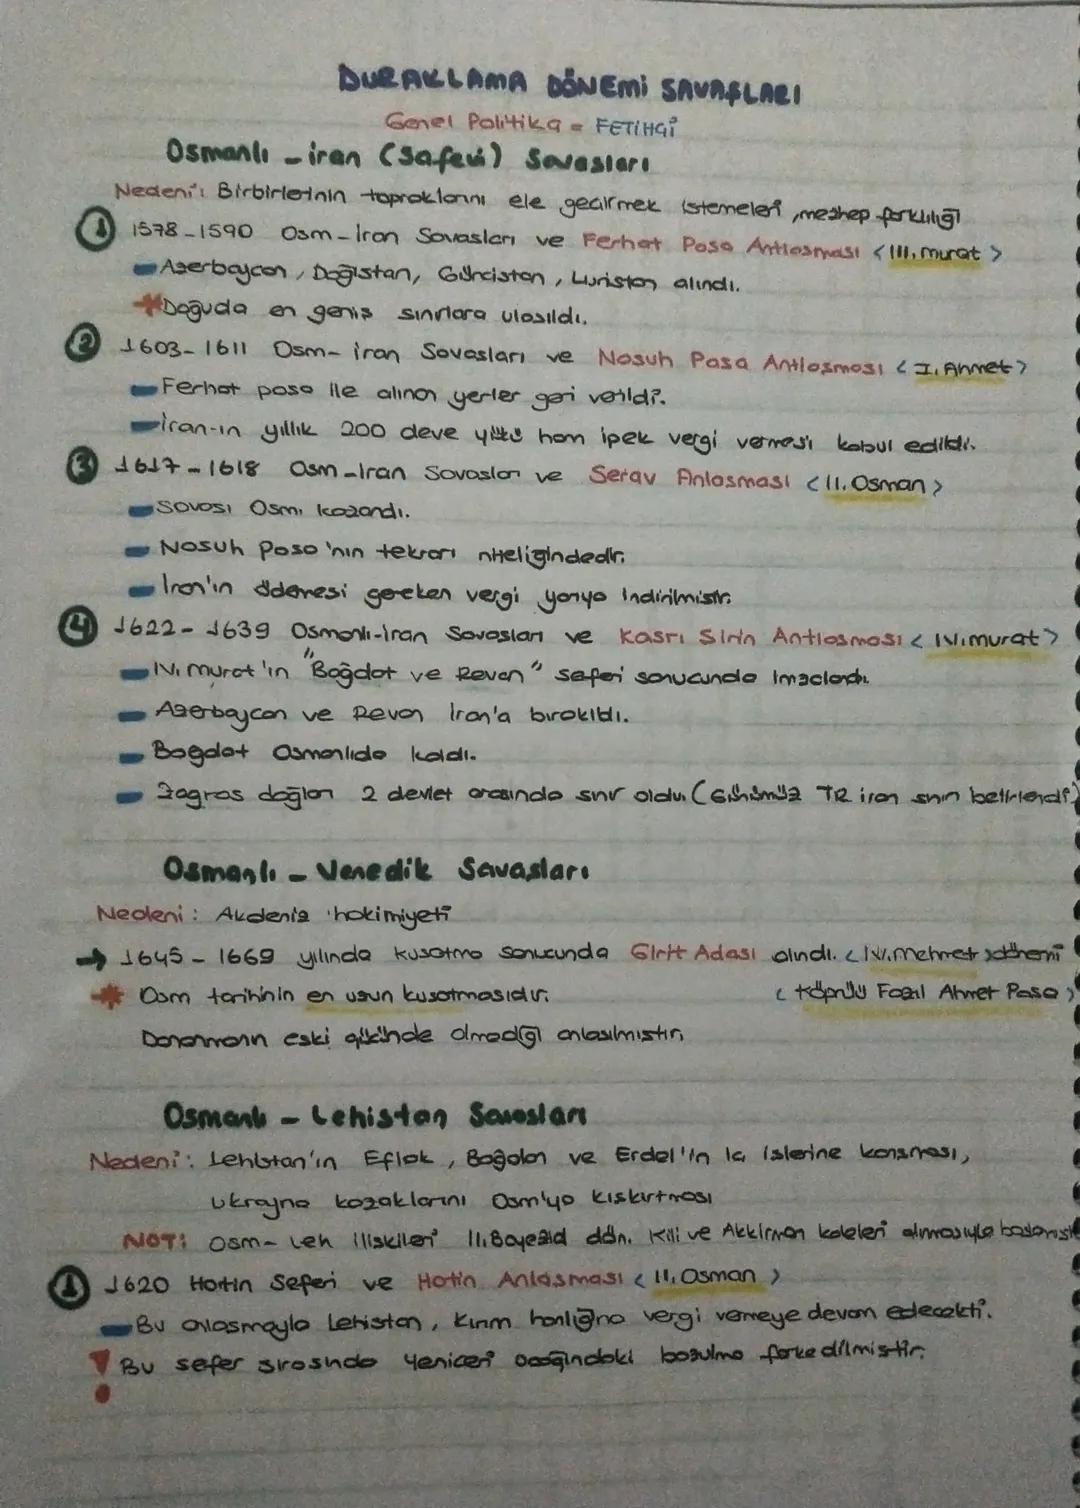 DURAKLAMA DÖNEMİ SAVAŞLARI
Genel Politika = FETİHÇİ
Osmanlı - iran (Safevi) Savaşları
Nedeni: Birbirlerinin topraklarını ele geçirmek istemeleri, mezhep farklılığı
1 1578-1590 Osm-İran Savaşları ve Ferhat Paşa Antlaşması <III. murat>
Azerbaycan, Dağıstan, Gürcistan, Luristan alındı.
*Doğuda en geniş sınırlara ulaşıldı.
2 1603-1611 Osm-iran Savaşları ve Nasuh Paşa Antlaşması <I. Ahmet>
Ferhat paşa ile alınan yerler geri verildi.
iran-ın yıllık 200 deve yükü ham ipek vergi vermesi kabul edildi.
3 1617-1618 Osm-Iran Savaşları ve Serav Anlaşması <II. Osman>
Savaşı Osm. kazandı.
Nasuh paşa'nın tekrarı niteliğindedir.
İran'ın ödemesi gereken vergi yarıya indirilmiştir.
4 1622-1639 Osmanlı-iran Savaşları ve Kasrı Şirin Antlaşması <IV. murat>
IV. murat'ın "Bağdat ve Revan" seferi sonucunda imzalandı.
Azerbaycan ve Revan İran'a bırakıldı.
Bağdat Osmanlıda kaldı.
Zagros dağları 2 devlet arasında sınır oldu. (Günümüz TR iran sınırı belirlendi)
Osmanlı - Venedik Savaşları
Nedeni: Akdeniz hakimiyeti
→ 1645-1669 yılında kuşatma sonucunda Girit Adası alındı. <IV. Mehmet> dönemi
* Osm tarihinin en uzun kuşatmasıdır. <Köprülü Fazıl Ahmet Paşa>
Donanmanın eski gücünde olmadığı anlaşılmıştır.
Osmanlı - Lehistan Savaşları
Nedeni: Lehistan'ın Eflak, Boğdan ve Erdel'in iç işlerine karışması,
Ukrayna kozaklarını Osm'ya kışkırtması
NOT: Osm-Leh ilişkileri II. Bayezid dön. Kili ve Akkirman kaleleri alınmasıyla başlamıştır
1 1620 Hotin Seferi ve Hotin Anlaşması <II. Osman>
Bu anlaşmayla Lehistan, Kırım hanlığına vergi vermeye devam edecekti.
! Bu sefer sırasında Yeniçeri ocağındaki bozulma farkedilmiştir.